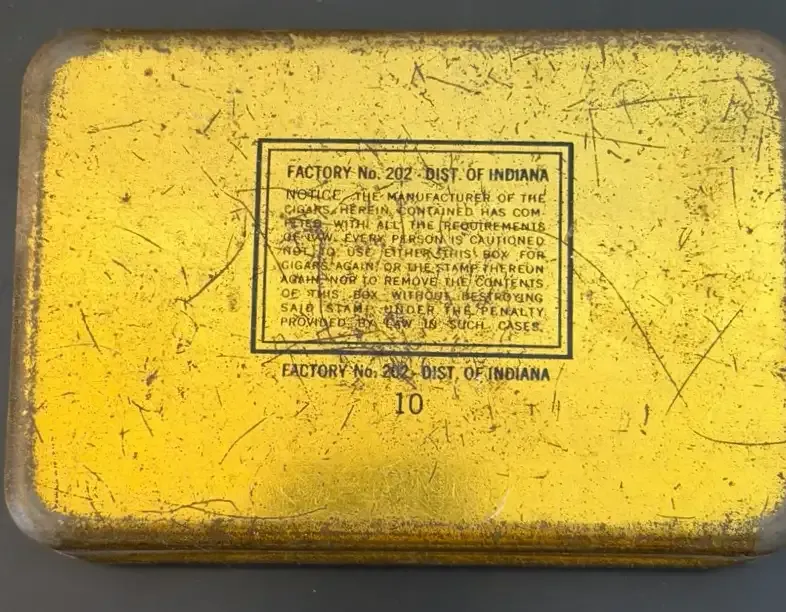 FACTORY No. 202 - DIST. OF INDIANA
NOTICE. THE MANUFACTURER OF THE
CIGARS HEREIN CONTAINED HAS COM-
PLIED WITH ALL THE REQUIREMENTS
OF LAW. EVERY PERSON IS CAUTIONED
NOT TO USE EITHER THIS BOX FOR
CIGARS AGAIN, OR THE STAMP THEREON
AGAIN, NOR TO REMOVE THE CONTENTS
OF THIS BOX WITHOUT DESTROYING
SAID STAMP, UNDER THE PENALTY
PROVIDED BY LAW IN SUCH CASES.
FACTORY No. 202 - DIST. OF INDIANA
10